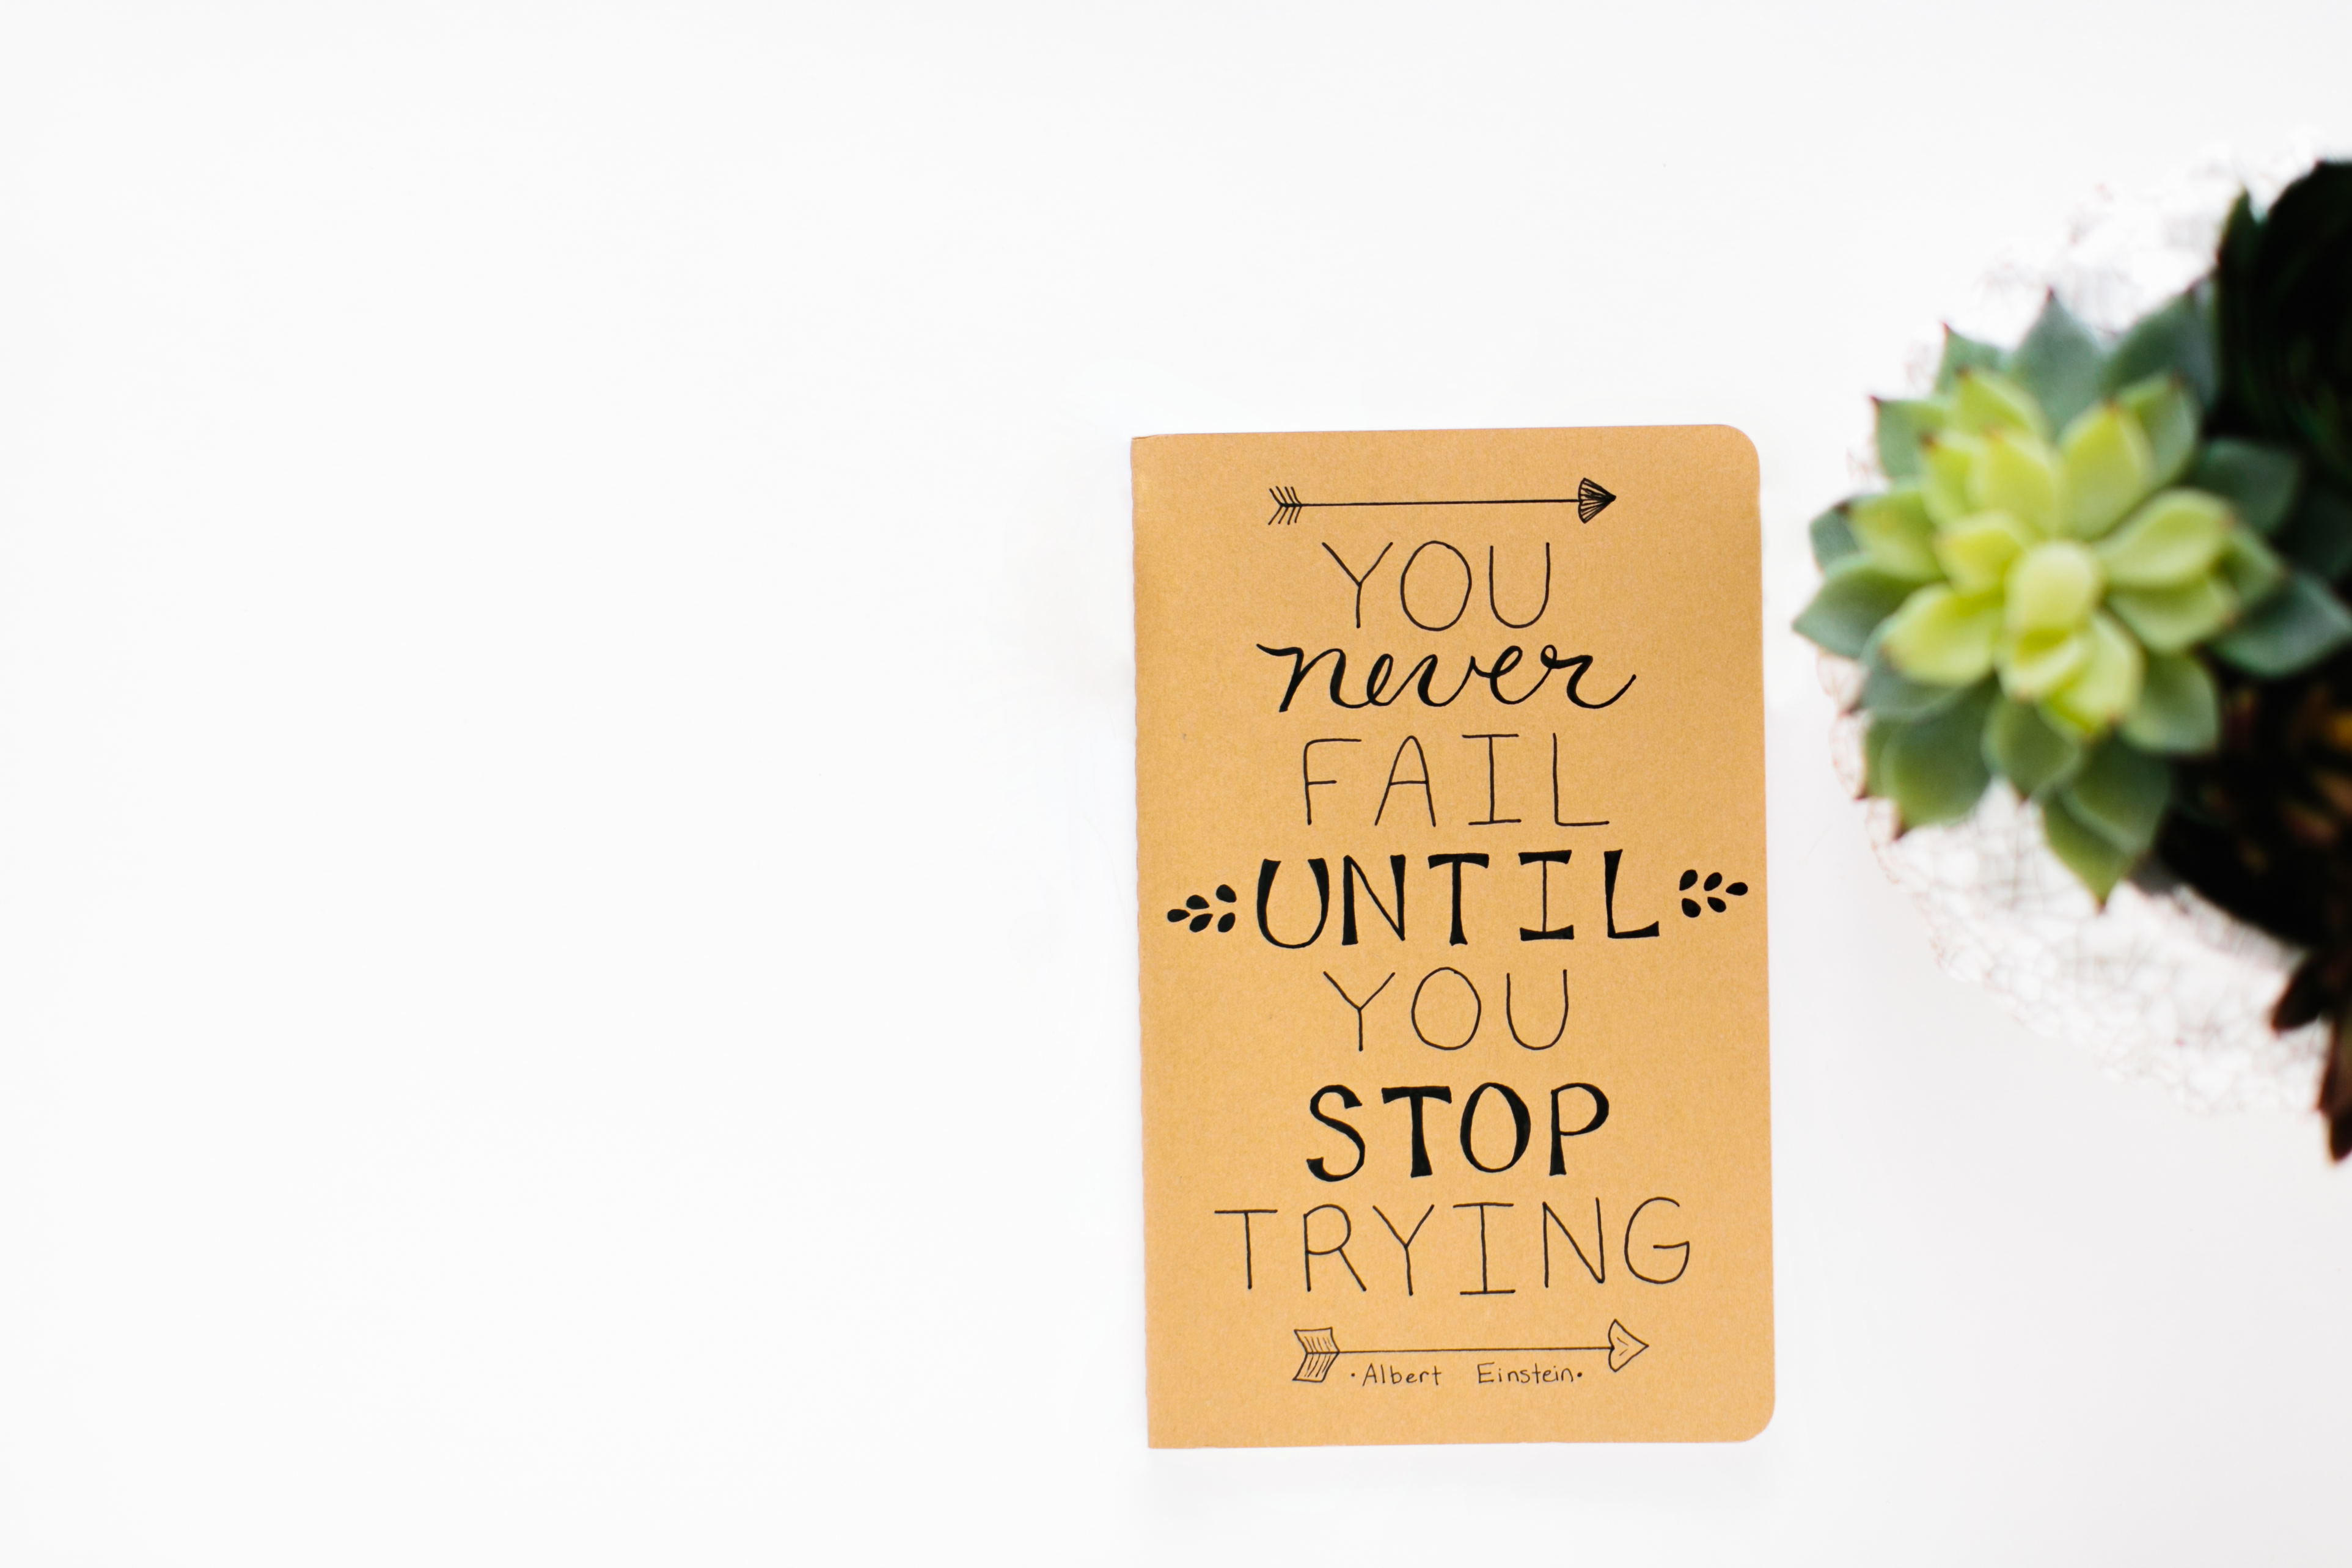 YOU
never
FAIL
UNTIL
YOU
STOP
TRYING
·Albert Einstein·